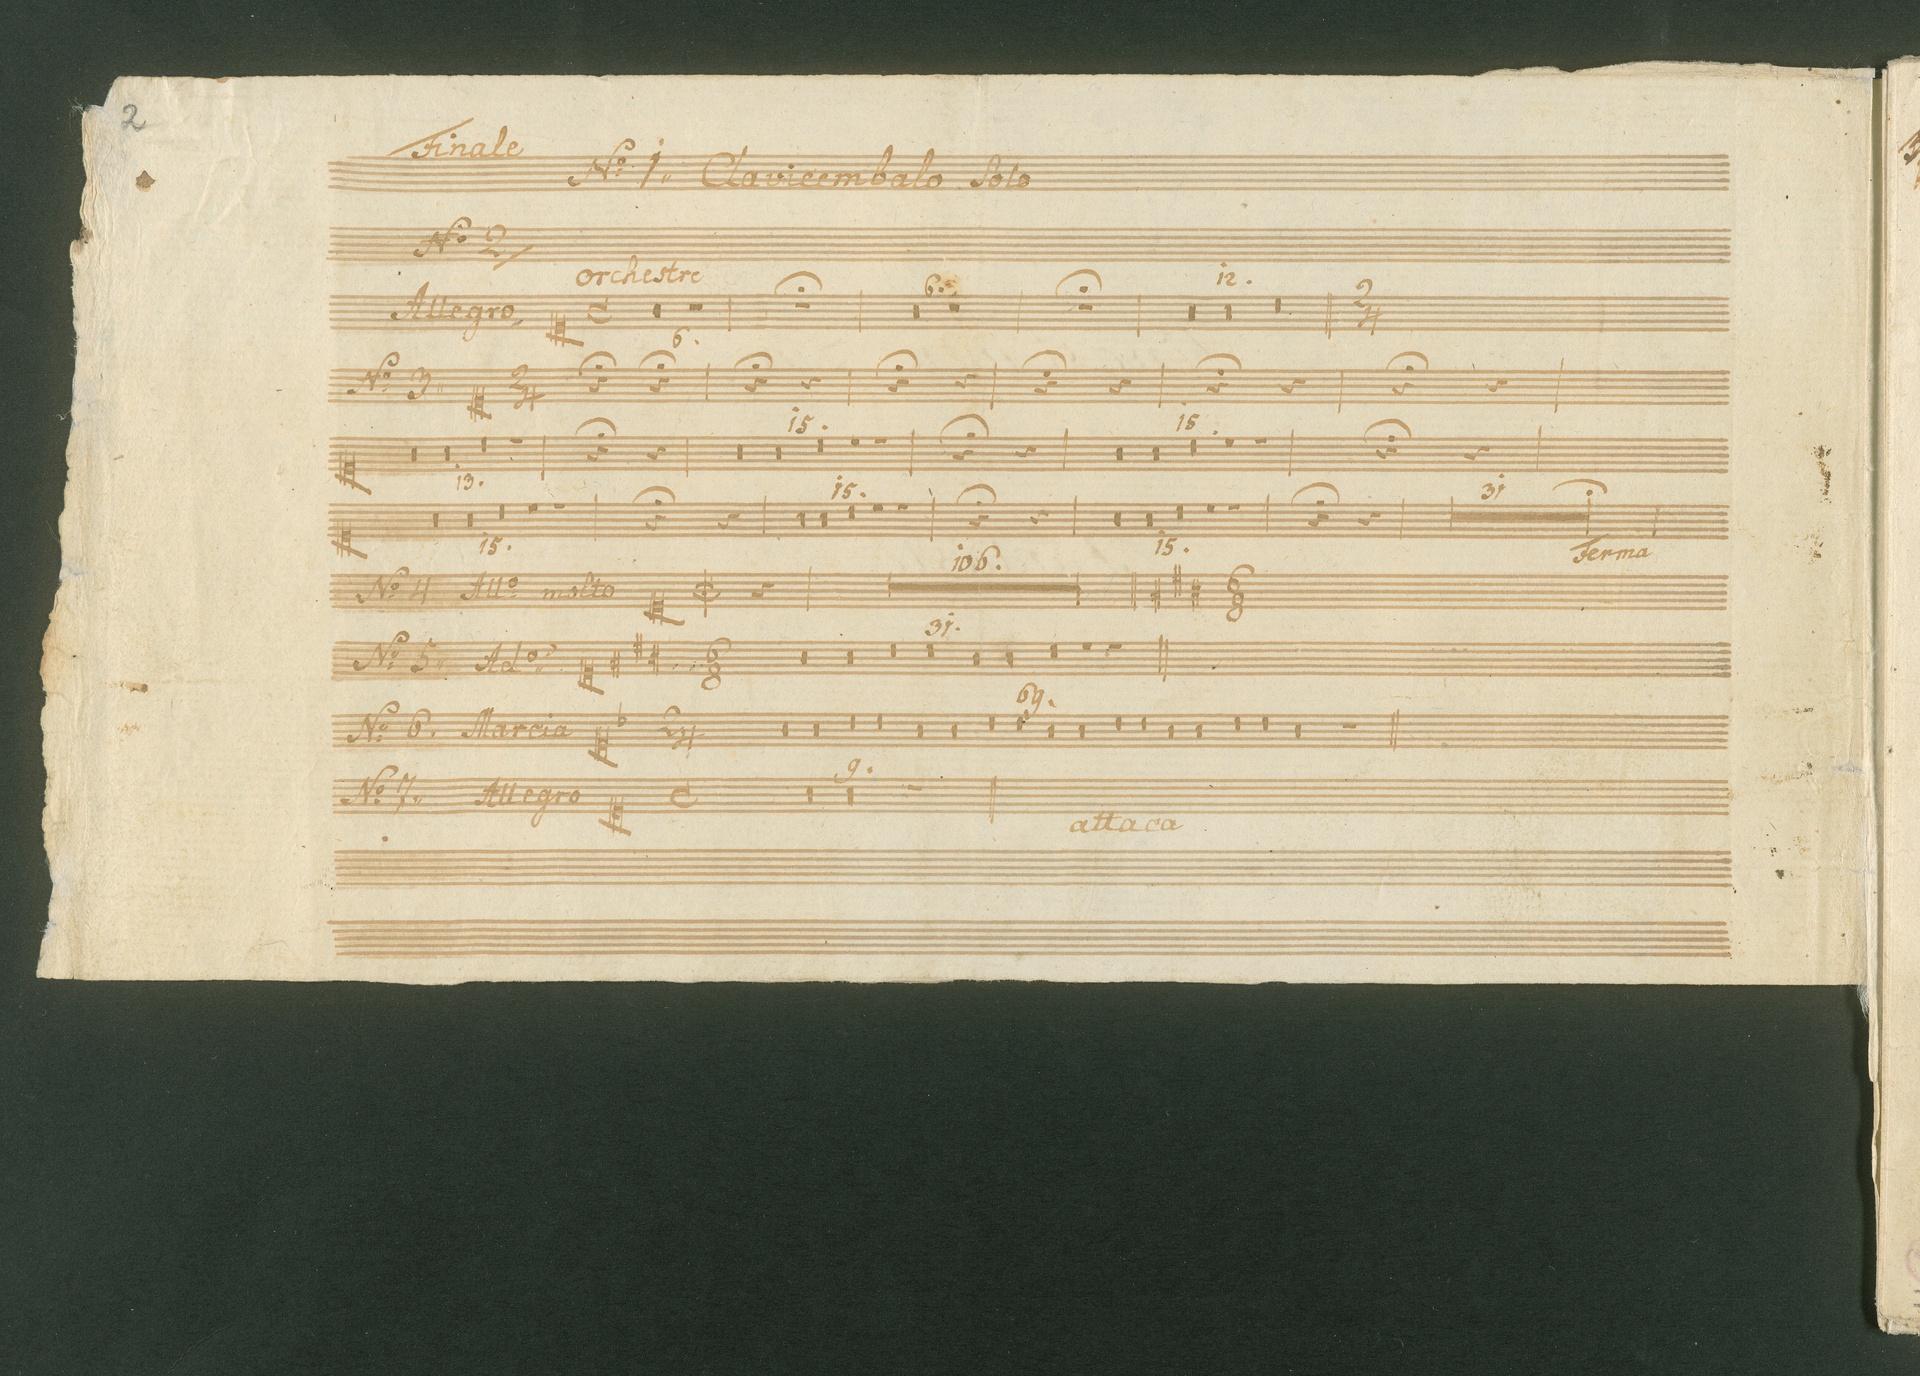 2
Finale
Nº 1. Clavicembalo Solo
Nº 2
orchestre
Allegro 6. 6. 12. 2/4
Nº 3. 2/4
13. 15. 15.
15. 15. 15. 31 Ferma
Nº 4 Allº molto 106. 6/8
Nº 5. Adº 6/8 31.
Nº 6. Marcia 2/4 69.
Nº 7. Allegro 9.
attaca